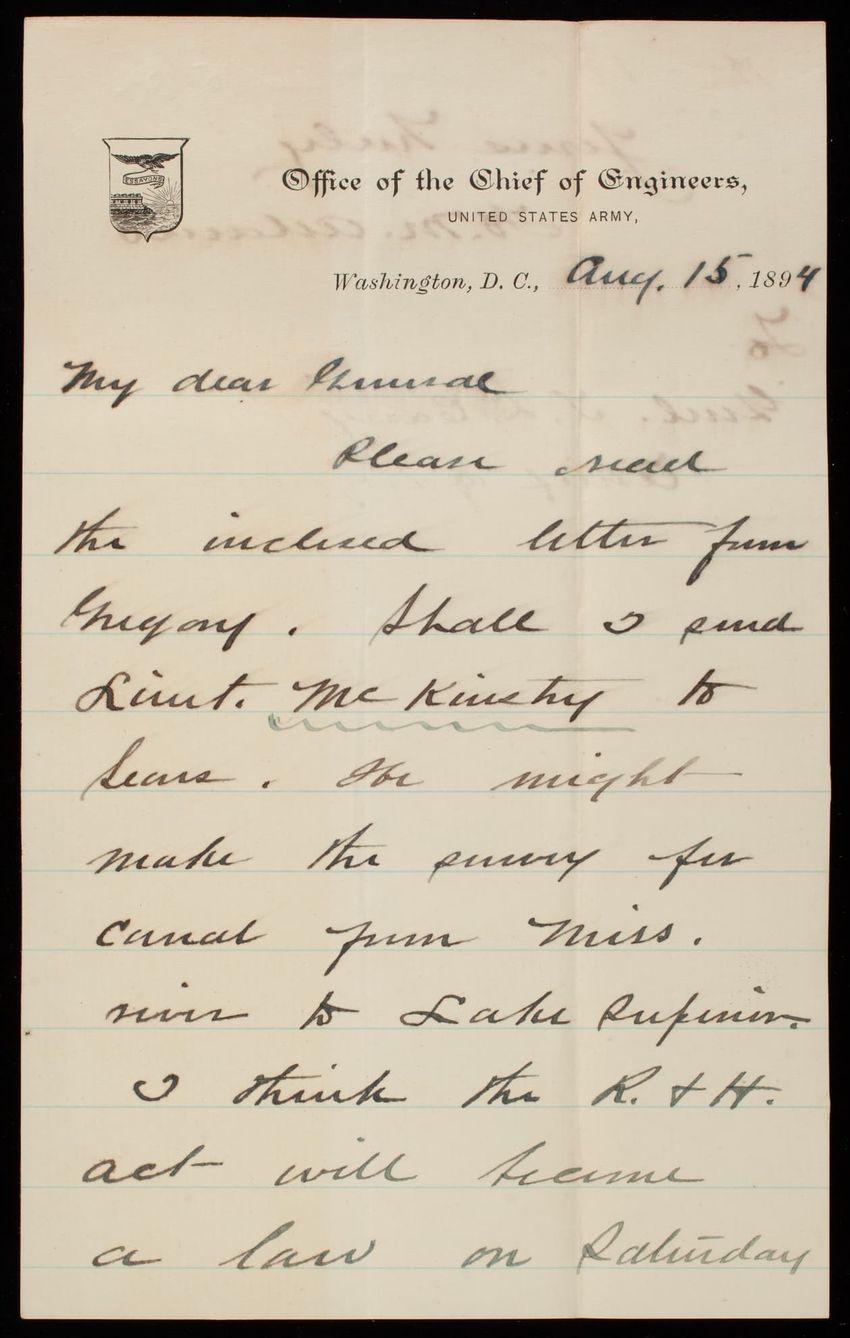 ESSAYONS
Office of the Chief of Engineers,
UNITED STATES ARMY,
Washington, D. C., Aug. 15, 1894
My dear General
Please read
the inclosed letter from
Gregory. Shall I send
Lieut. McKinstry to
Sears. He might
make the survey for
canal from Miss.
river to Lake Superior.
I think the R. & H.
act will become
a law on Saturday